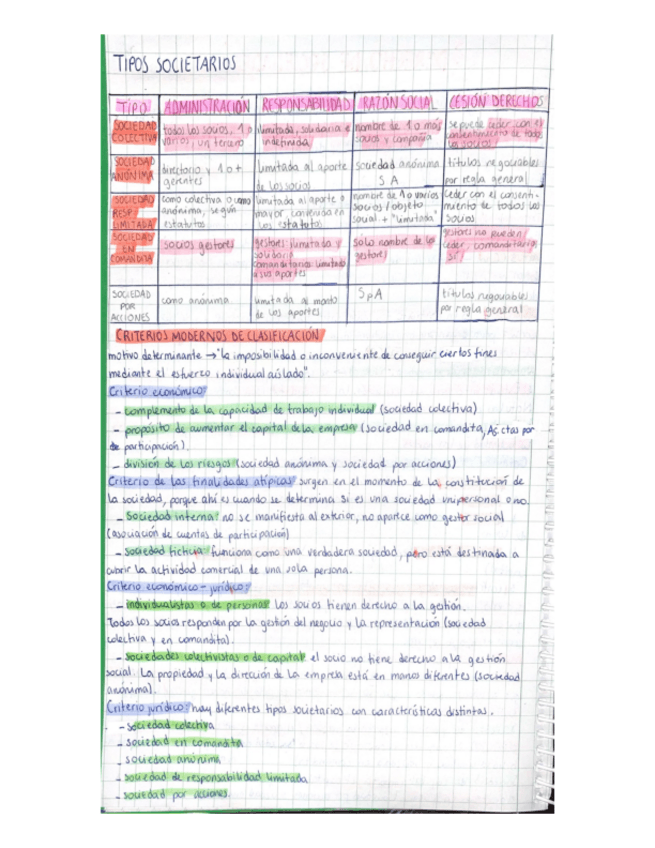 TIPOS SOCIETARIOS
TIPO ADMINISTRACIÓN RESPONSABILIDAD RAZÓN SOCIAL CESIÓN DERECHOS
SOCIEDAD COLECTIVA
todos los socios, 1 o
varios, un tercero
ilimitada, solidaria e
indefinida
nombre de 1 o más
socios y compañía
se puede ceder con el
consentimiento de todos
los socios
SOCIEDAD ANÓNIMA
directorio y 1 o +
gerentes
limitada al aporte
de los socios
sociedad anónima
S A
títulos negociables
por regla general
SOCIEDAD
RESP.
LIMITADA
como colectiva o como
anónima, según
estatutos
limitada al aporte o
mayor, contenida en
los estatutos
nombre de 1 o varios
socios/objeto
social + "limitada"
ceder con el consenti-
miento de todos los
socios
SOCIEDAD
EN
COMANDITA
socios gestores
gestores ilimitada y
solidaria
comanditarios limitada
a sus aportes
solo nombre de los
gestores
gestores no pueden
ceder, comanditarios
sí
SOCIEDAD
POR
ACCIONES
como anónima
limitada al monto
de los aportes
SpA
títulos negociables
por regla general
CRITERIOS MODERNOS DE CLASIFICACIÓN
motivo determinante → "la imposibilidad o inconveniente de conseguir ciertos fines
mediante el esfuerzo individual aislado".
Criterio económico:
- complemento de la capacidad de trabajo individual (sociedad colectiva)
- propósito de aumentar el capital de la empresa (sociedad en comandita, As. ctas por
participación).
- división de los riesgos (sociedad anónima y sociedad por acciones)
Criterio de las finalidades atípicas: surgen en el momento de la constitución de
la sociedad, porque ahí es cuando se determina si es una sociedad unipersonal o no.
- Sociedad interna: no se manifiesta al exterior, no aparece como gestor social
(asociación de cuentas de participación)
- sociedad ficticia: funciona como una verdadera sociedad, pero está destinada a
cubrir la actividad comercial de una sola persona.
Criterio económico - jurídico:
- individualistas o de personas: los socios tienen derecho a la gestión.
Todos los socios responden por la gestión del negocio y la representación (sociedad
colectiva y en comandita).
- sociedades colectivistas o de capital: el socio no tiene derecho a la gestión
social. La propiedad y la dirección de la empresa está en manos diferentes (sociedad
anónima).
Criterio jurídico: hay diferentes tipos societarios con características distintas.
- sociedad colectiva
- sociedad en comandita
- sociedad anónima
- sociedad de responsabilidad limitada
- sociedad por acciones.